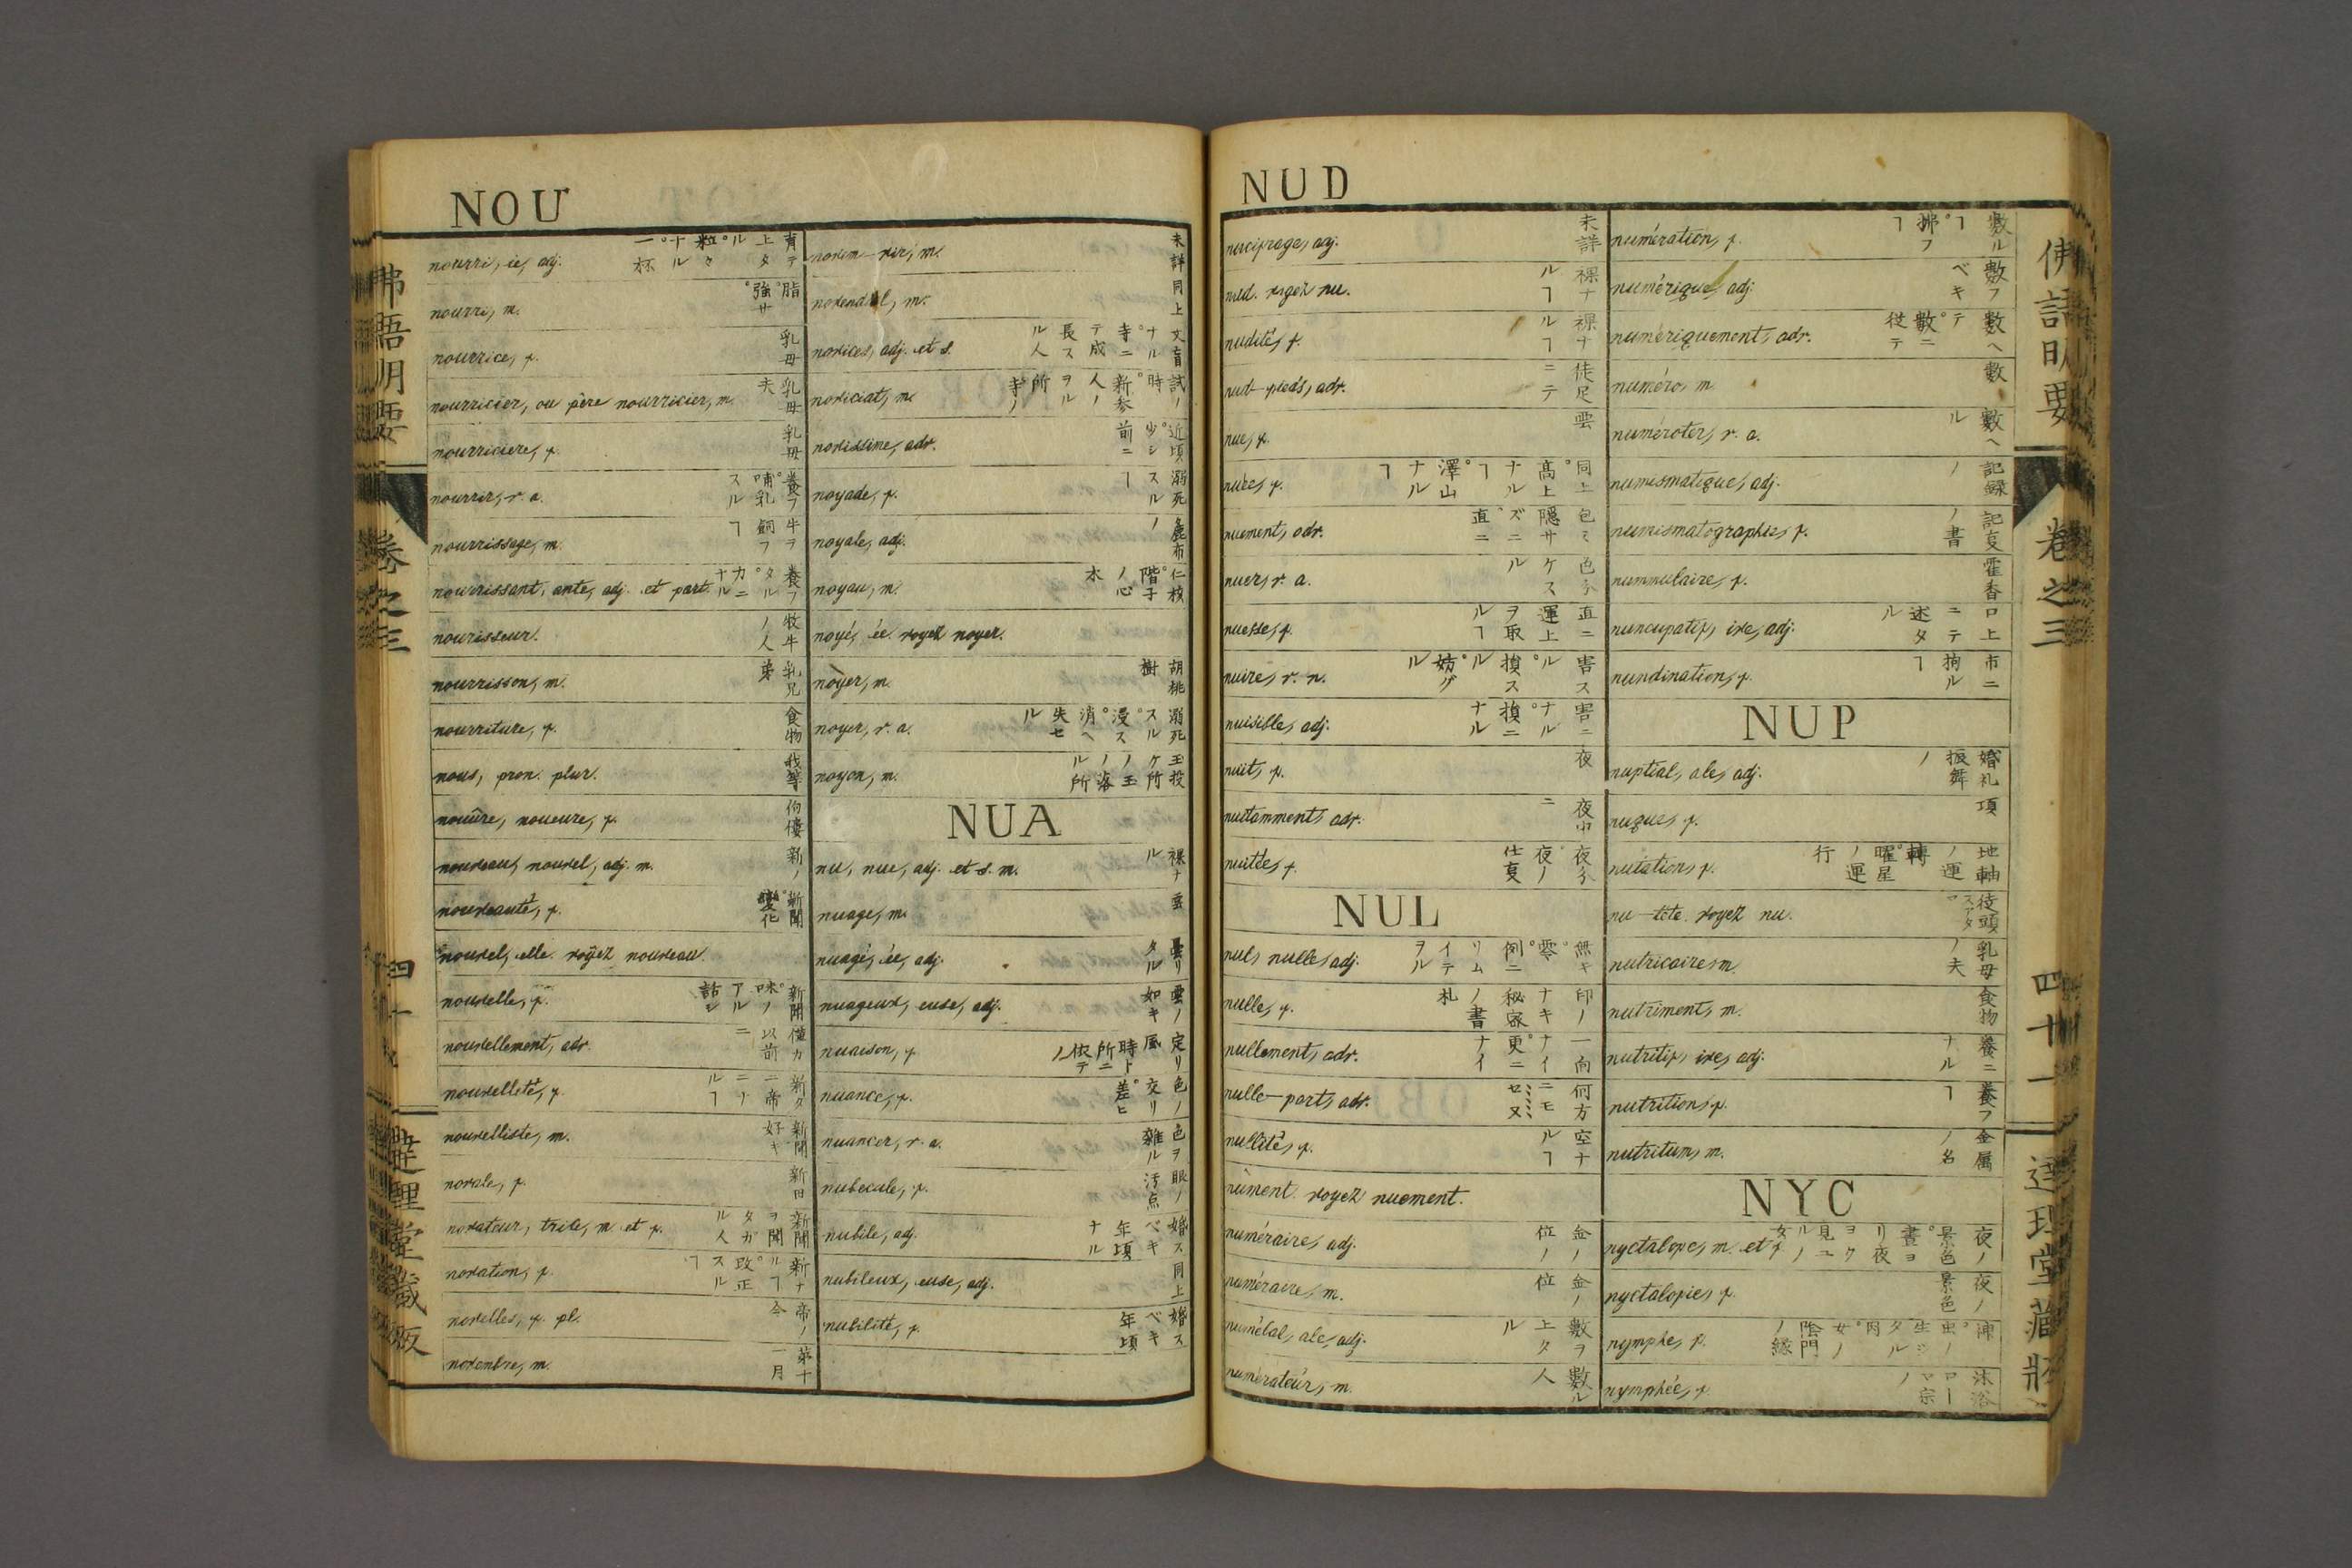 NOU
nourri, ie, adj. 育テ上タル。粒々ナル。一杯
nourri, m. 脂。強サ。
nourrice, f. 乳母
nourricier, ou père nourricier, m. 乳母夫
nourriciere, f. 乳母
nourrir, v. a. 養フ。哺乳スル
nourrissage, m. 牛ヲ飼フヿ
nourrissant, ante, adj. et part. 養フタル。力ニナル
nourisseur. 牧牛ノ人
nourrisson, m. 乳兄弟
nourriture, f. 食物
nous, pron. plur. 我等
nouûre, noueure, f. 佝僂
nouveau, nouvel, adj. m. 新ノ
nouveauté, f. 新聞。變化
nouvel, elle. voyez nouveau.
nouvelle, f. 新聞。味ノアル話シ
nouvellement, adv. 僅カ以前ニ
nouvelleté, f.
nouvelliste, m. 新聞好キ
novale, f. 新田
novateur, trice, m. et f. 新聞ヲ聞ガタル人
novation, f. 新ナルヿ。改正スルヿ
novelles, f. pl. 帝ノ令
novembre, m. 第十一月
novem-vir, m. 未詳
novendial, m. 同上
novice, adj. et s. 文盲ナル。寺ニテ成長スル人
noviciat, m. 試ノ時。新参人ノヲル所寺ノ
novissime, adv. 近頃。少シ前ニ
noyade, f. 溺死スルヿ
noyale, adj. 麁布ノ
noyau, m. 仁核。階子ノ心木
noyé, ée. voyez noyer.
noyer, m. 胡桃樹
noyer, v. a. 溺死スル。浸ス。消ヘ失セル
noyon, m. 玉投ケ所ノ玉ノ落ル所
NUA
nu, nue, adj. et s. m. 裸ナル
nuage, m. 雲
nuagé, ée, adj. 曇リタル
nuageux, euse, adj. 雲ノ如キ
nuaison, f. 定リ風時ト所ニ依テノ
nuance, f. 色ノ交リ。差ヒ
nuancer, v. a. 色ヲ雑ル
nubecule, f. 眼ノ汚点
nubile, adj. 婚スベキ年頃ナル
nubileux, euse, adj. 同上
nubilité, f. 婚スベキ年頃
NUD
nucifrage, adj. 未詳
nud. voyez nu. 裸ナルヿ
nudité, f. 裸ナルヿ
nud-pieds, adv. 徒足ニテ
nue, f. 雲
nuée, f. 同上。高上ナルヿ。澤山ナルヿ
nuement, adv. 包ミ隠サズニ。直ニ
nuer, v. a. 色分ケスル
nuesse, f. 直ニ運上ヲ取ルヿ
nuire, v. n. 害スル。損スル。妨グル
nuisible, adj. 害ニナル。損ニナル
nuit, f. 夜
nuitamment, adv. 夜中ニ
nuitée, f. 夜分。夜ノ仕事
NUL
nul, nulle, adj. 無キ。零。例ニリムイテヲル
nulle, f. 印ノナキ秘密ノ書札
nullement, adv. 一向ナイ。更ニナイ
nulle-part, adv. 何方ニモ
nullité, f. 空ナルヿ
nûment. voyez nuement.
numéraire, adj. 金ノ位ノ
numéraire, m. 金ノ位
numéral, ale, adj. 數ヲ上タル
numérateur, m. 數ル人
numération, f. 數ルヿ。拂フヿ
numérique, adj. 數フベキ
numériquement, adv. 數ヘテ。數ニ従テ
numéro, m. 數
numéroter, v. a. 數ヘル
numismatique, adj. 記録ノ
numismatographie, f. 記事ノ書
nummulaire, f. 霍香
nuncupatif, ive, adj. 口上ニテ述タル
nundination, f. 市ニ拘ルヿ
NUP
nuptial, ale, adj. 婚礼振舞ノ
nuque, f. 項
nutation, f. 地軸ノ運轉。曜星ノ運行
nu-tête. voyez nu. 徒頭スアタマ
nutricaire, m. 乳母ノ夫
nutriment, m. 食物
nutritif, ive, adj. 養ニナル
nutrition, f. 養フヿ
nutritum, m. 金属ノ名
NYC
nyctalope, m. et f. 夜ノ景色。晝ヨリ夜ヨク見ユル女ノ
nyctalopie, f. 夜ノ景色
nymphe, f. 神。虫ノ生シタル肉。女ノ陰門ノ縁
nymphée, f. 沐浴ローマ宗ノ
佛語明要 卷之三 四十一 達理堂藏版